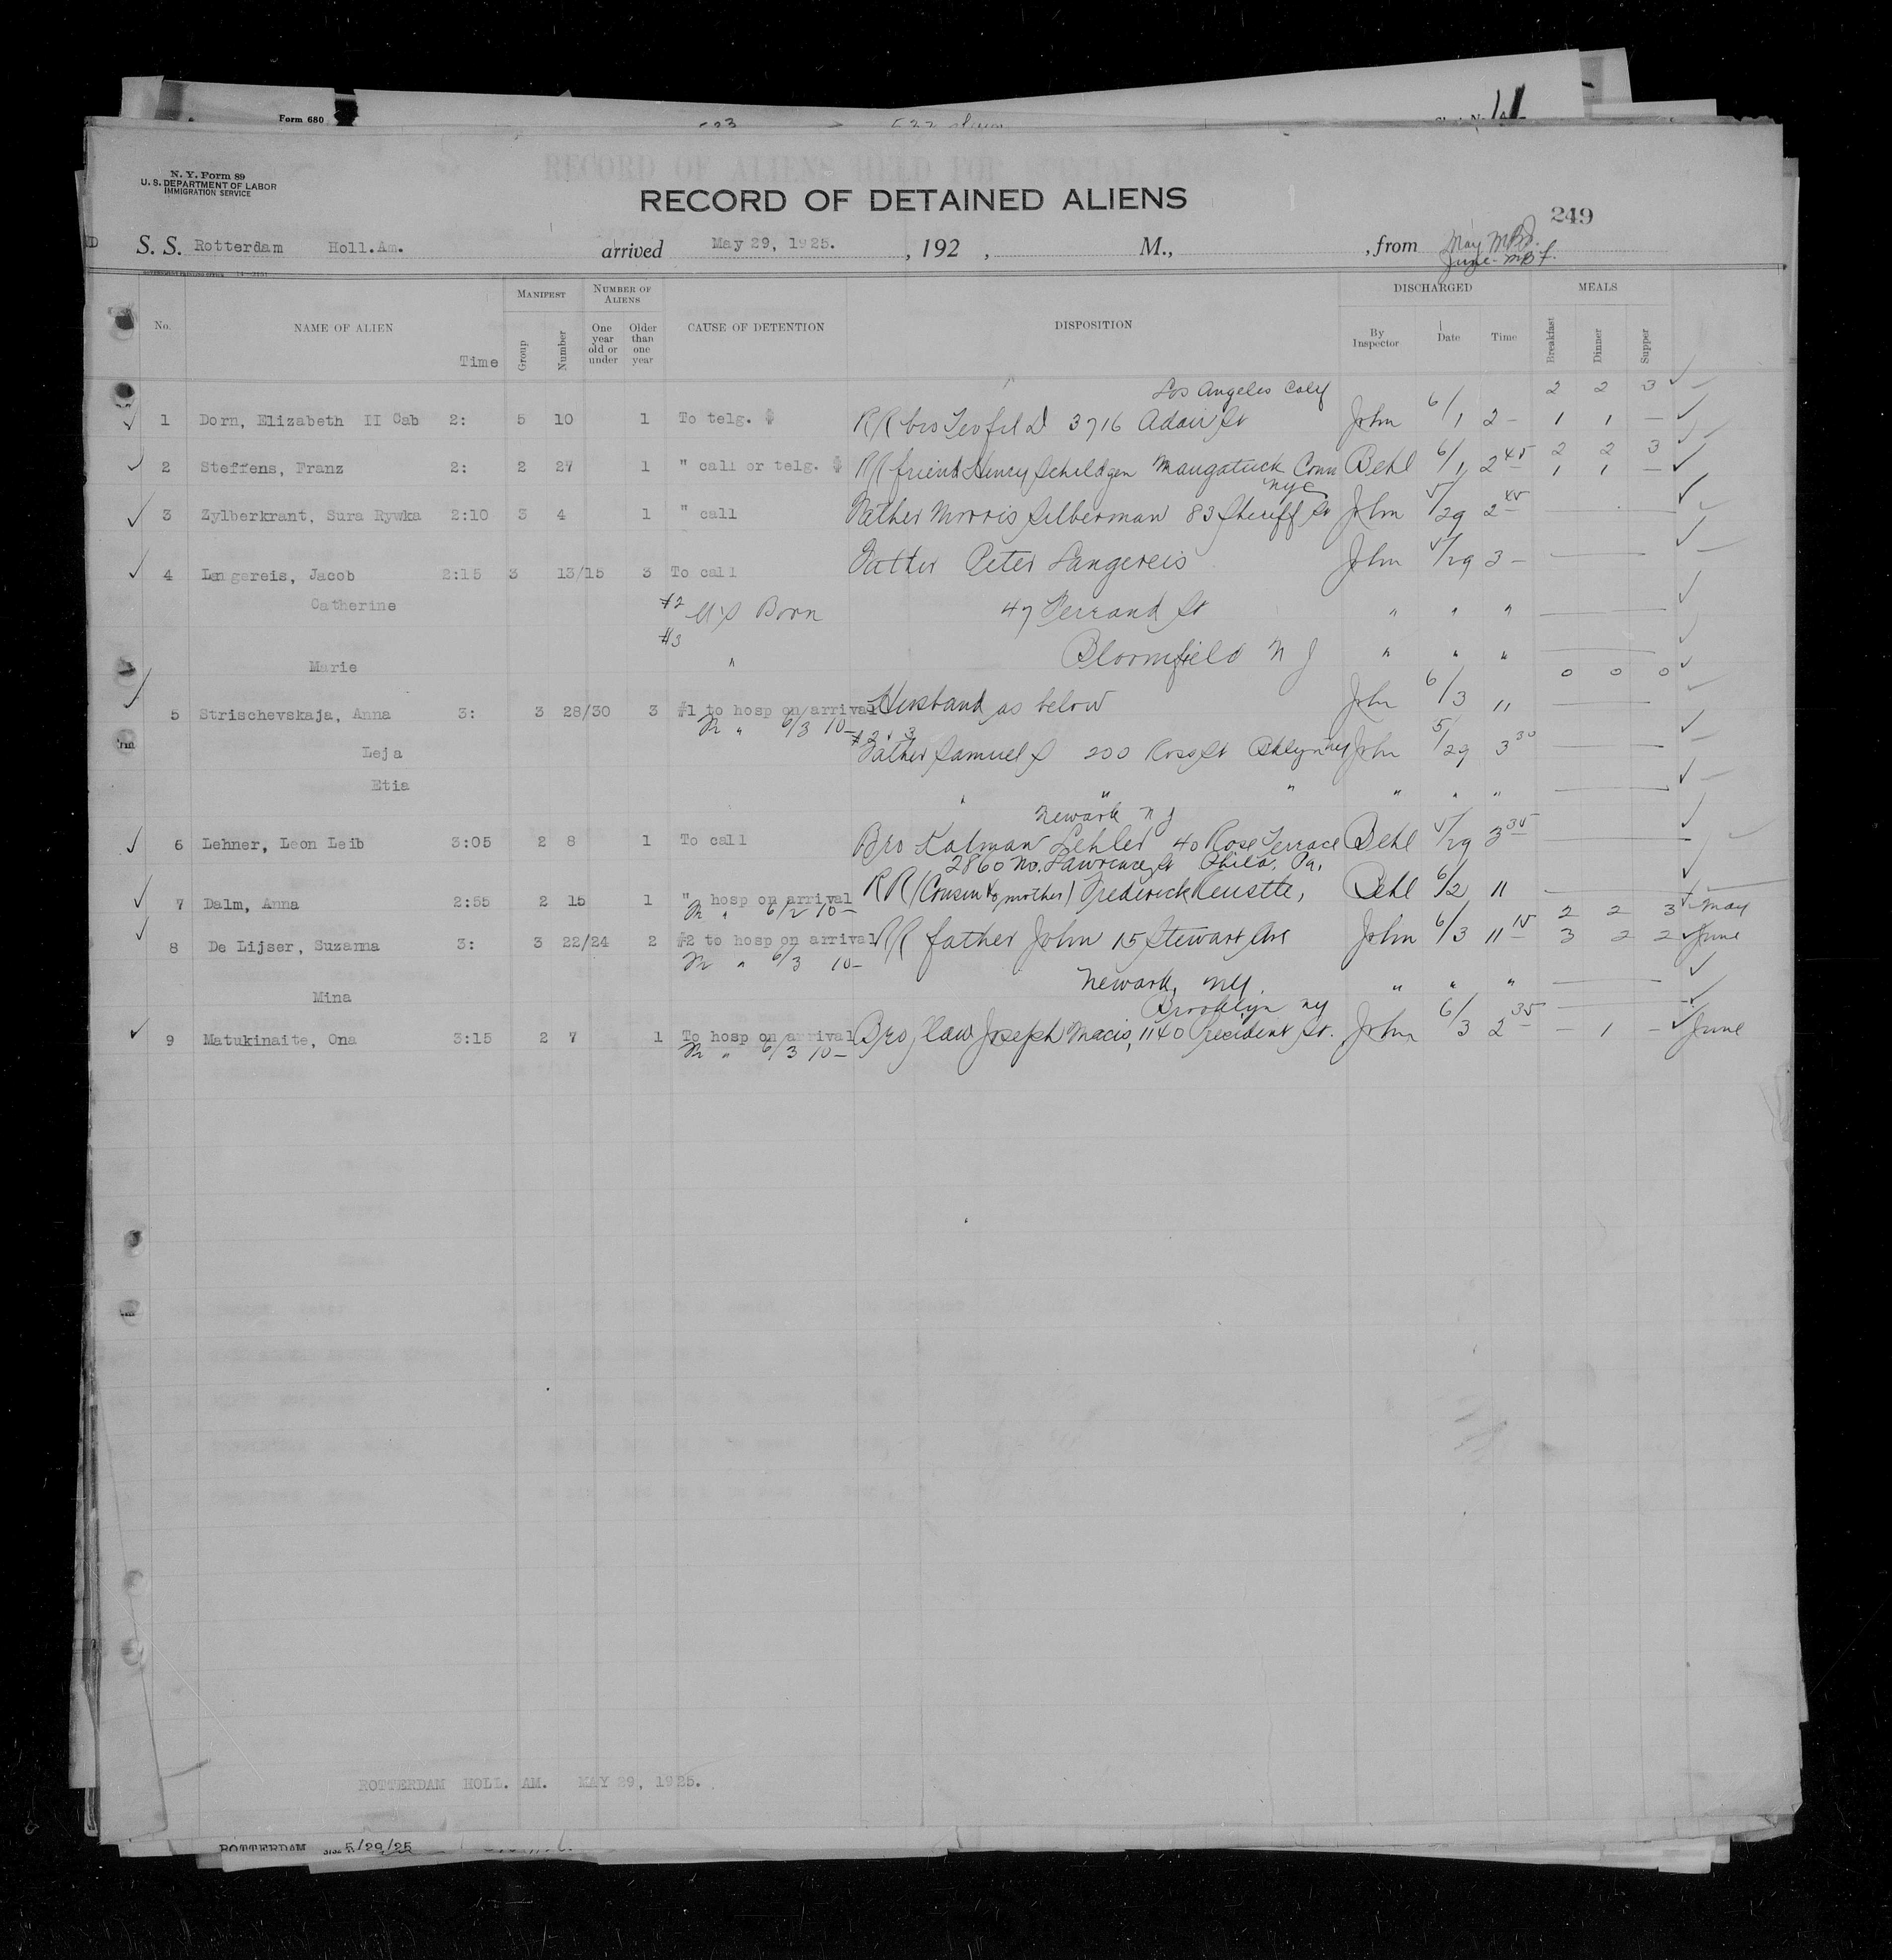 Form 680
N. Y. Form 89
U. S. DEPARTMENT OF LABOR
IMMIGRATION SERVICE
RECORD OF DETAINED ALIENS
249
S. S. Rotterdam Holl.Am. arrived May 29, 1925. , 192 , M., , from May
June
No. NAME OF ALIEN Time MANIFEST Group Number NUMBER OF ALIENS One year old or under Older than one year CAUSE OF DETENTION DISPOSITION DISCHARGED By Inspector Date Time MEALS Breakfast Dinner Supper
Los Angeles Calif 2 2 3
1 Dorn, Elizabeth II Cab 2: 5 10 1 To telg. R/R bro Teofil D 3716 Adair St John 6/1 2 – 1 1 —
2 2 3
2 Steffens, Franz 2: 2 27 1 " call or telg. R/R friend Henry Schildgen Naugatuck Conn Behl 6/1 2 45 1 1 —
NYC
3 Zylberkrant, Sura Rywka 2:10 3 4 1 " call Father Morris Silberman 83 Sheriff St John 5/29 2 45
4 Langereis, Jacob 2:15 3 13/15 3 To call Father Peter Langereis John 5/29 3 –
Catherine #2 US Born 47 Ferrand St " " "
#3
Marie " Bloomfield N J " " "
0 0 0
5 Strischevskaja, Anna 3: 3 28/30 3 #1 to hosp on arrival Husband as below John 6/3 11
" 6/3 10– #2 3
Leja Father Samuel S 200 Ross St Bklyn ny John 5/29 3 30
Etia " " " " " "
Newark N J
6 Lehner, Leon Leib 3:05 2 8 1 To call Bro Kalman Lehler 40 Rose Terrace Behl 5/29 3 35
2860 No. Lawrence St Phila, Pa,
7 Dalm, Anna 2:55 2 15 1 " hosp on arrival R R (Cousin to mother) Frederick Keustle, Behl 6/2 11
" 6/2 10– 2 2 3 May
8 De Lijser, Suzanna 3: 3 22/24 2 #2 to hosp on arrival R/R father John 15 Stewart Ave John 6/3 11 15 3 2 2 June
" 6/3 10–
Newark, NY.
Mina " " "
Brooklyn ny
9 Matukinaite, Ona 3:15 2 7 1 To hosp on arrival Bro/law Joseph Macis, 1140 President St. John 6/3 2 35 – 1 – June
" 6/3 10–
ROTTERDAM HOLL. AM. MAY 29, 1925.
ROTTERDAM 5/29/25